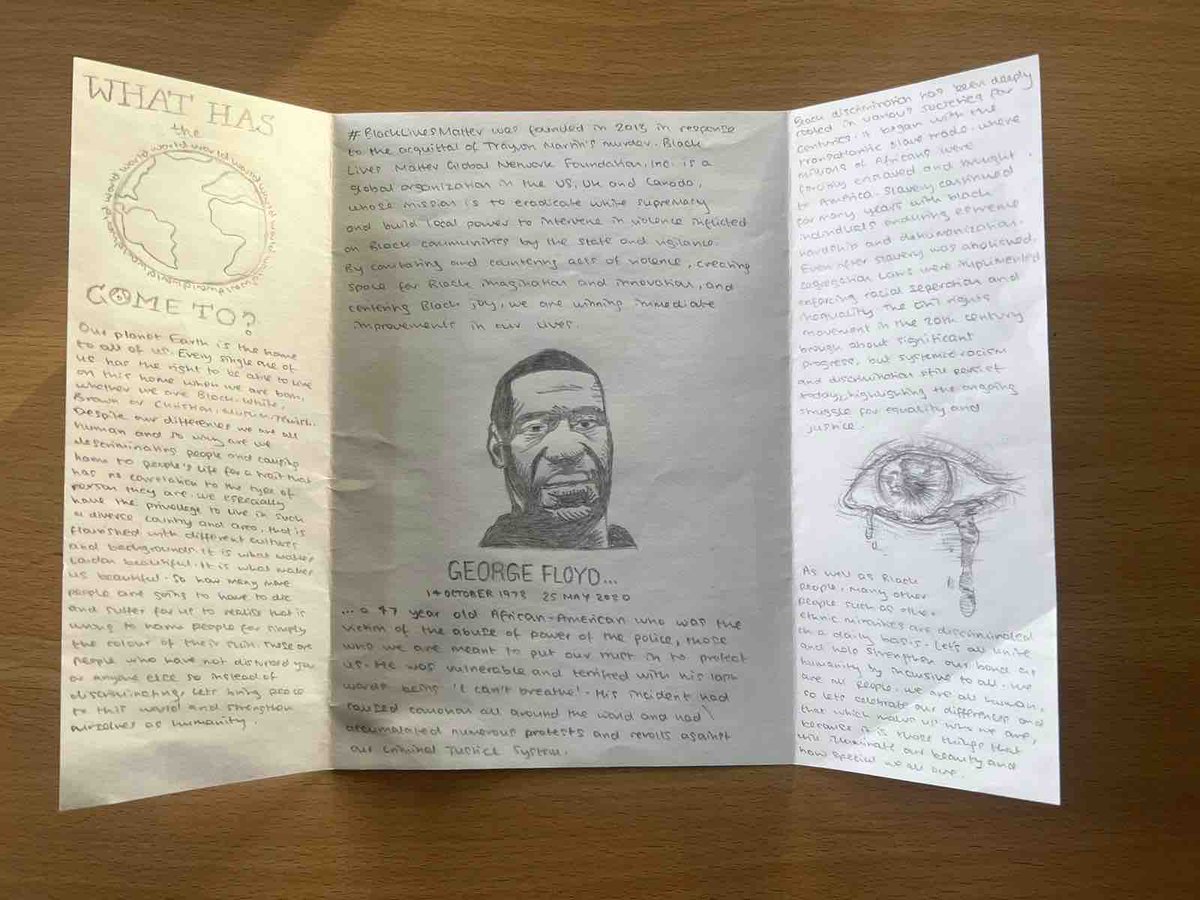 WHAT HAS
the
world world world world world world world world world world
COME TO?
Our planet Earth is the home
to all of us. Every single one of
us has the right to be able to live
on this home when we are born,
whether we are Black, White,
Brown or Christian, Muslim, Jewish.
Despite our differences we are all
human and so why are we
descriminating people and causing
harm to people's life for a trait that
has no correlation to the type of
person they are. We especially
have the privilege to live in such
a diverse country and area, that is
flourished with different cultures
and backgrounds. It is what makes
London beautiful. It is what makes
us beautiful. So how many more
people are going to have to die
and suffer for us to realise that is
wrong to harm people for simply
the colour of their skin. These are
people who have not disturbed you
or anyone else so instead of
discriminating, let's bring peace
to this world and strengthen
ourselves as humanity.
#BlackLivesMatter was founded in 2013 in response
to the acquittal of Trayvon Martin's murder. Black
Lives Matter Global Network Foundation, Inc. is a
global organization in the US, UK and Canada,
whose mission is to eradicate white supremacy
and build local power to intervene in violence inflicted
on Black communities by the state and vigilante.
By combating and countering acts of violence, creating
space for Black imagination and innovation, and
centering Black joy, we are winning immediate
improvements in our lives.
GEORGE FLOYD...
14 OCTOBER 1978 25 MAY 2020
... a 47 year old African-American who was the
victim of the abuse of power of the police, those
who we are meant to put our trust in to protect
us. He was vulnerable and terrified with his last
words being 'I can't breathe'. His incident had
caused comotion all around the world and had
accumalated numerous protests and revolts against
our criminal justice system.
Black discrimination has been deeply
rooted in various societies for
centuries. It began with the
transatlantic slave trade, where
millions of Africans were
forcibly enslaved and brought
to America. Slavery continued
for many years with black
individuals enduring extreme
hardship and dehumanization.
Even after slavery was abolished,
segregation laws were implimented
enforcing racial seperation and
inequality. The civil rights
movement in the 20th century
brough about significant
progress, but systemic racism
and discrimination still persist
today, highlighting the ongoing
struggle for equality and
justice.
As well as Black
people, many other
people such as other
ethnic minorities are discriminated
on a daily basis. Let's all unite
and help strengthen our bonds as
humanity by inclusive to all. We
are all people, we are all human,
so lets celebrate our differences and
that which makes us who we are,
because it is those things that
will illuminate our beauty and
how special we all are.